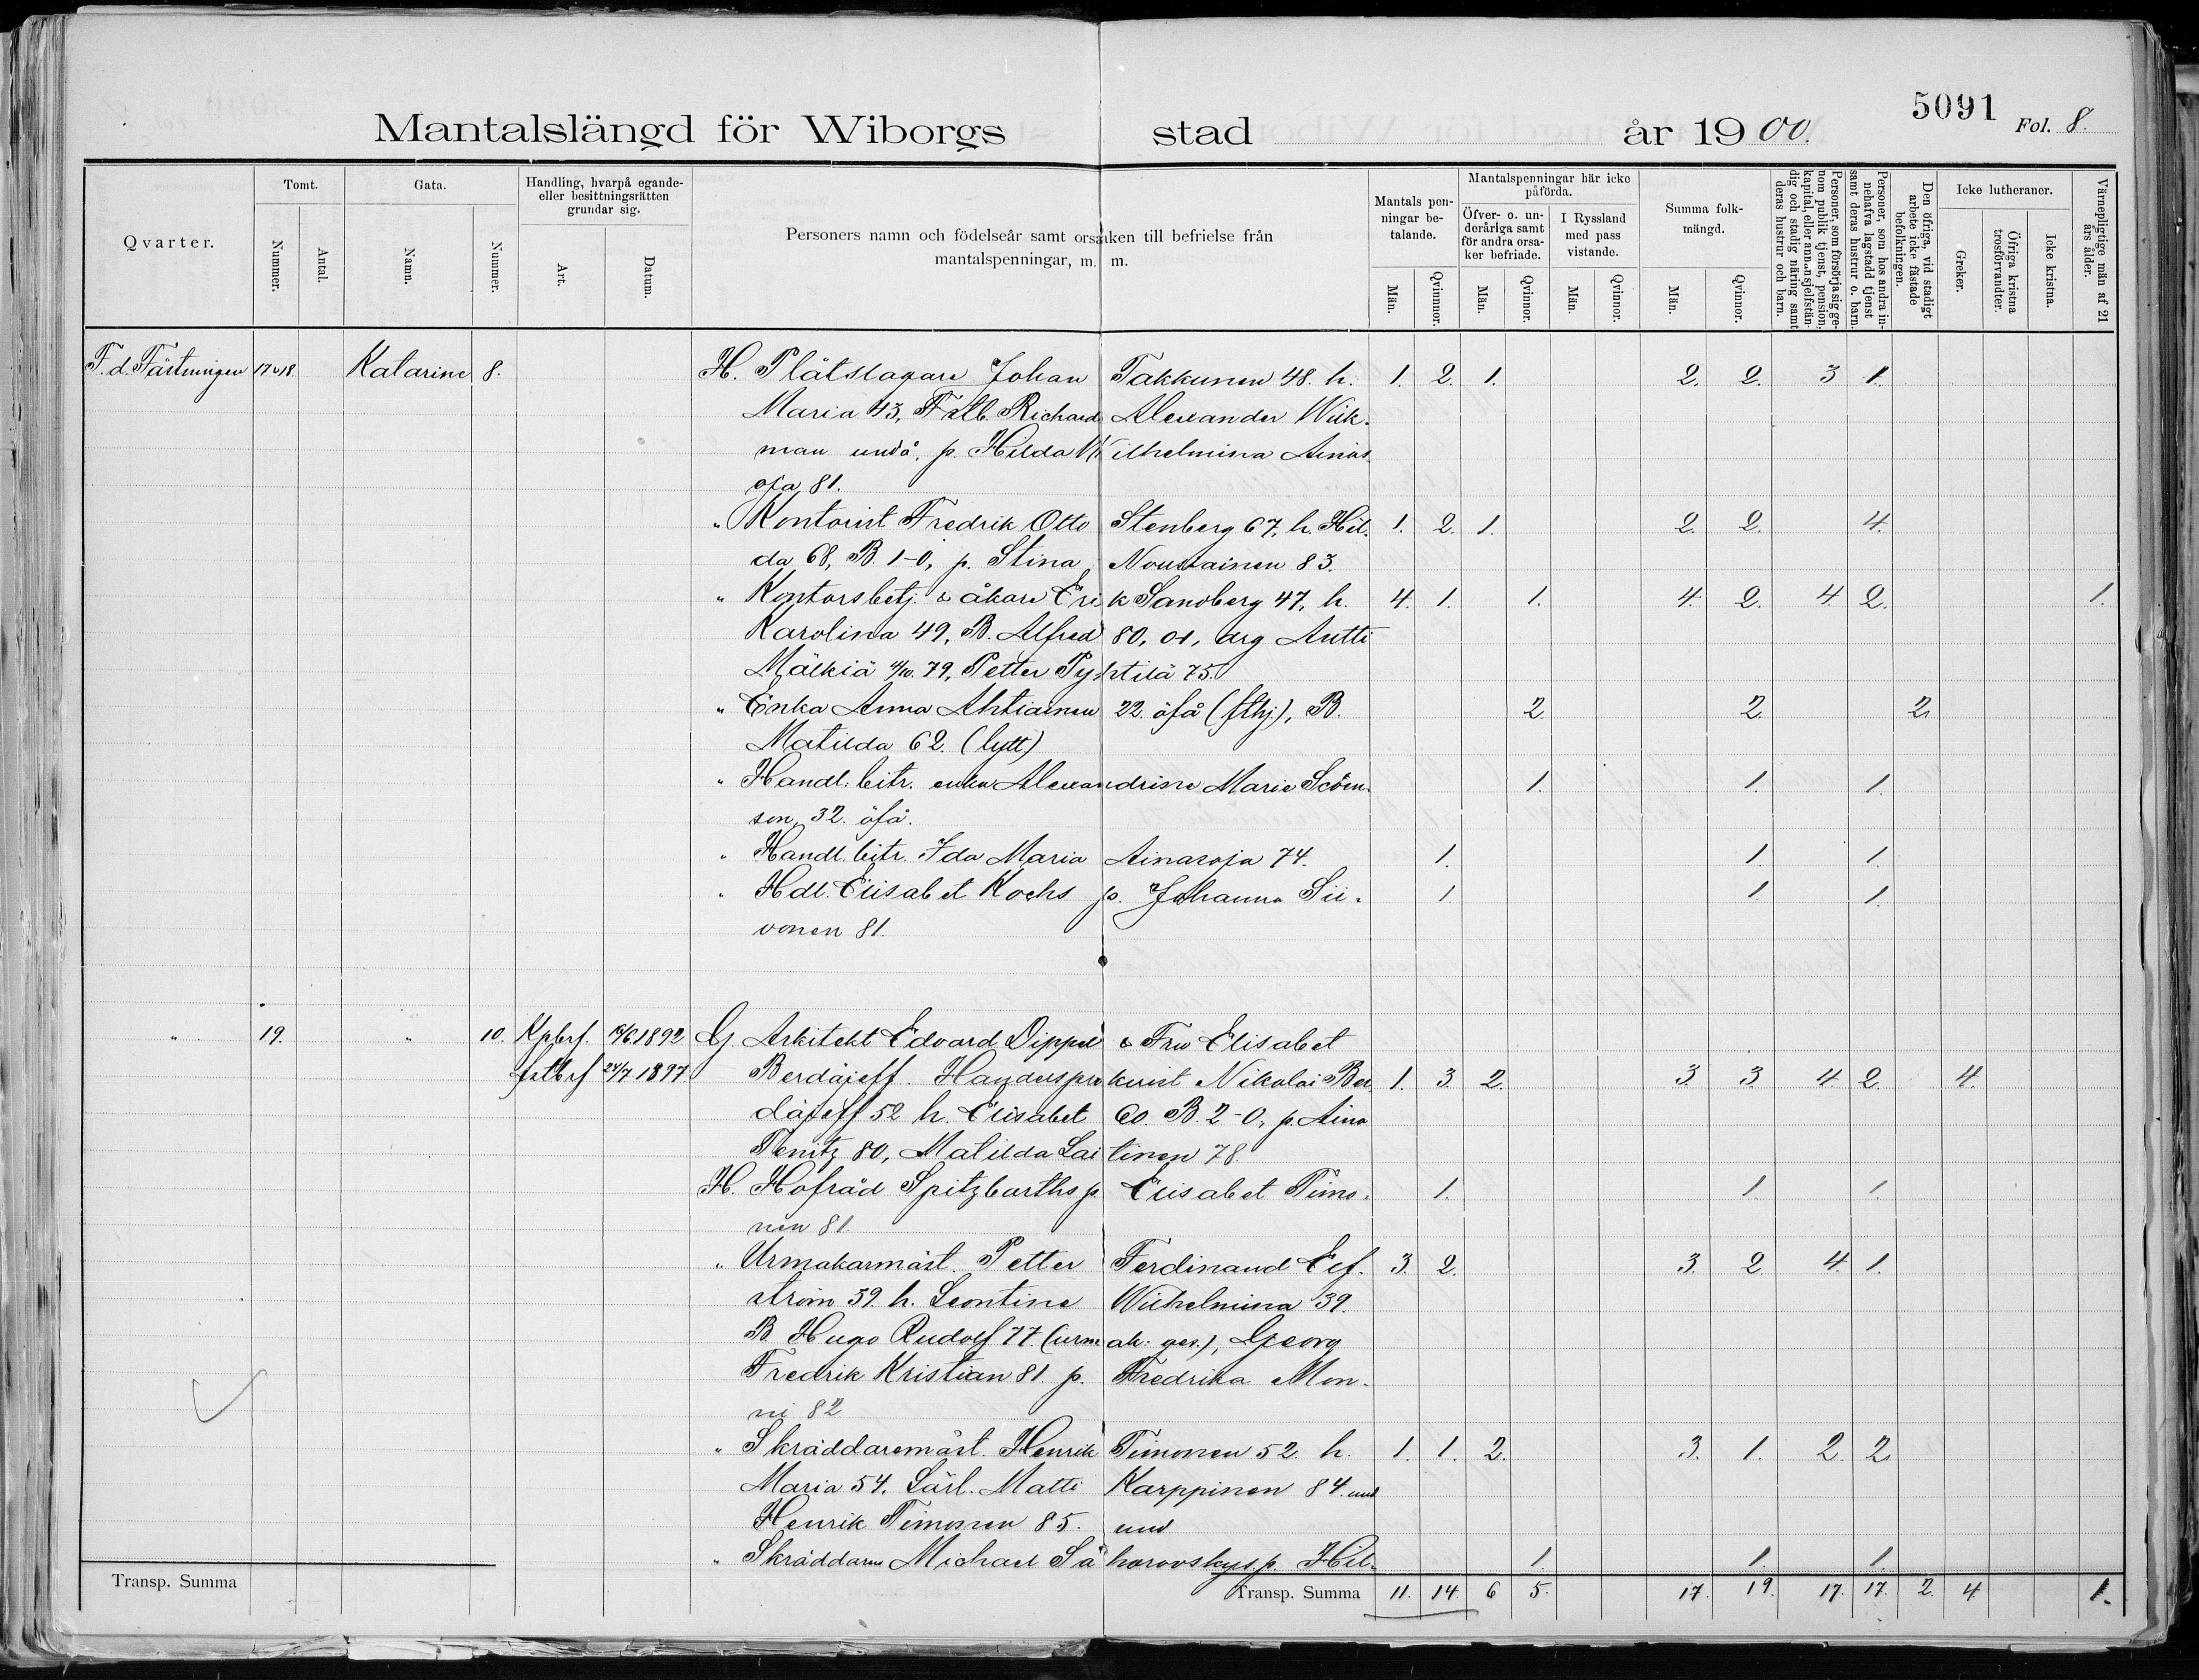 5091
Fol. 8.
Mantalslängd för Wiborgs stad år 1900.
Qvarter.
Tomt.
Nummer.
Antal.
Gata.
Namn.
Nummer.
Handling, hvarpå egande- eller besittningsrätten grundar sig.
Art.
Datum.
Personers namn och födelseår samt orsaken till befrielse från mantalspenningar, m. m.
Mantals penningar betalande.
Män.
Qvinnor.
Mantalspenningar här icke påförda.
Öfver- o. underåriga samt för andra orsaker befriade.
Män.
Qvinnor.
I Ryssland med pass vistande.
Män.
Qvinnor.
Summa folkmängd.
Män.
Qvinnor.
Personer, som försörja sig genom publik tjenst, pension, kapital, eller annan sjelfständig och stadig näring samt deras hustrur och barn.
Personer, som hos andra innehafva lagstadd tjenst samt deras hustrur o. barn.
Den öfriga, vid stadigt arbete icke fästade befolkningen.
Icke lutheraner.
Greker.
Öfriga kristna trosförvandter.
Icke kristna.
Värnepligtige män af 21 års ålder.
F. d. Fästningen 17 o 18. Katarine 8. H. Plåtslagare Johan Takkunen 48. h. 1. 2. 1. 2. 2. 3 1.
Maria 43, Richard Alexander Wik-
man p. Hilda Wilhelmina Ainas-
oja 81.
" Kontorist Fredrik Otto Stenberg 67, h. Hil- 1. 2. 1. 2. 2. 4.
da 68, B. 1-0, p. Stina Nousiainen 83.
" Kontorsbetj. & åkare Erik Sandberg 47, h. 4. 1. 1. 4. 2. 4. 2. 1.
Karolina 49, B. Alfred 80, drg Antti
Mälkiä 79, Petter Pyhtilä 75.
" Enka Anna Ahtiainen 22. öfå (fthj), B. 2. 2. 2.
Matilda 62. (lytt)
" Handl. bitr. enka Alexandrine Marie 1. 1. 1.
son, 32. öfå.
" Handl. bitr. Ida Maria Ainasoja 74. 1. 1. 1.
" Hdl. Elisabet Kochs p. Johanna Sii- 1 1 1.
vonen 81.
" 19. " 10. Kpbrf. 1892 G. Arkitekt Edvard Dippel & Fru Elisabet
fstbrf 24/7 1897 Berdäjeff. Handelsprokurist Nikolai Ber- 1. 3. 2. 3. 3. 4. 2. 4.
däjeff 52 h. Elisabet 60. B. 2-0, p. Aina
Tenitz 80, Matilda Laitinen 78.
H. Hofråd Spitzbarths p. Elisabet Timo- 1. 1. 1.
nen 81.
" Urmakarmäst. Petter Ferdinand Elf- 3. 2. 3. 2. 4. 1.
ström 39. h. Leontine Wilhelmina 39.
B. Hugo Rudolf 77. (urmak: ges.), Georg
Fredrik Kristian 81. p. Fredrika Mon-
ni 82
" Skräddaremäst. Henrik Timonen 52. h. 1. 1. 2. 3. 1. 2. 2.
Maria 54. Lärl. Matti Karppinen 84. und
Henrik Timonen 85. und
" Skräddare Michael p. Hil- 1. 1. 1.
Transp. Summa
Transp. Summa 11. 14. 6 5. 17. 19. 17. 17. 2. 4. 1.